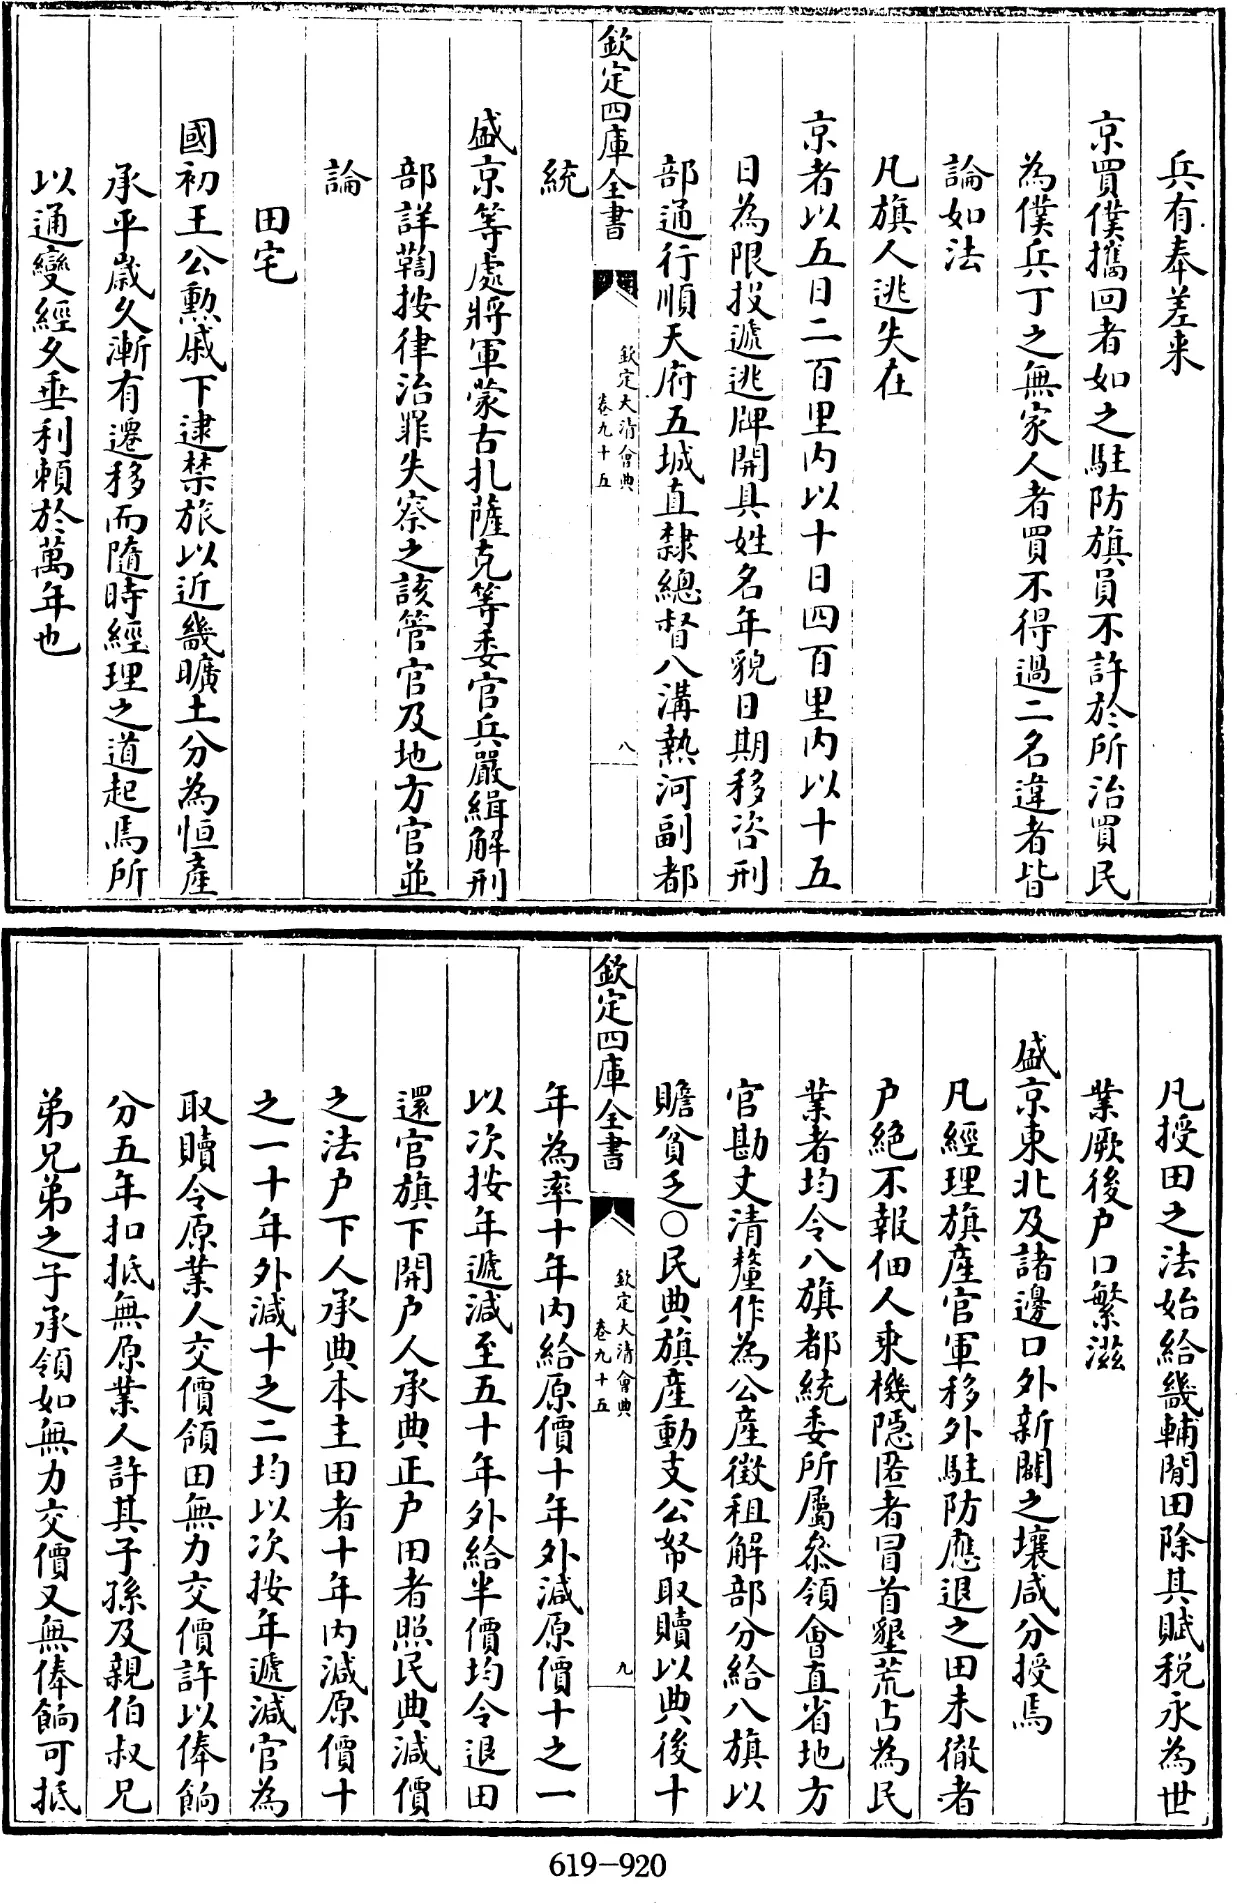 兵有奉差来
京買僕攜回者如之駐防旗員不許於所治買民
為僕兵丁之無家人者買不得過二名違者皆
論如法
凡旗人逃失在
京者以五日二百里内以十日四百里内以十五
日為限投遞逃牌開具姓名年貌日期移咨刑
部通行順天府五城直隸總督八溝熱河副都
欽定四庫全書
欽定大清會典
卷九十五
八
統
盛京等處將軍蒙古扎薩克等委官兵嚴緝解刑
部詳鞫按律治罪失察之該管官及地方官並
論
田宅
國初王公勲戚下逮禁旅以近畿曠土分為恒產
承平歲久漸有遷移而隨時經理之道起焉所
以通變經久垂利賴於萬年也
凡授田之法始給畿輔閒田除其賦税永為世
業厥後户口繁滋
盛京東北及諸邊口外新闢之壤咸分授焉
凡經理旗產官軍移外駐防應退之田未徹者
户絶不報佃人乗機隱匿者冒首墾荒占為民
業者均令八旗都統委所屬叅領會直省地方
官勘丈清釐作為公產徵租解部分給八旗以
贍貧乏○民典旗產動支公帑取贖以典後十
欽定四庫全書
欽定大清會典
卷九十五
九
年為率十年内給原價十年外減原價十之一
以次按年遞減至五十年外給半價均令退田
還官旗下開户人承典正户田者照民典減價
之法户下人承典本主田者十年内減原價十
之一十年外減十之二均以次按年遞減官為
取贖令原業人交價領田無力交價許以俸餉
分五年扣抵無原業人許其子孫及親伯叔兄
弟兄弟之子承領如無力交價又無俸餉可抵
619-920